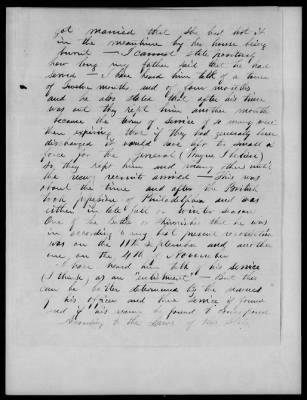 got married that she lost it
in the meantime by her house being
burnt — I cannot state positively
how long my father said that he had
served — I have heard him talk of a time
of twelve months and of four months
and he also stated that after his time
was out they kept him another month
because the term of service of so many were
then expiring that if they had generally been
discharged it would have left too small a
force for the General (Wayne I believe)
So they kept him and many others until
the new recruit arrived — This was
about the time and after the British
took possession of Philadelphia and was
either in late fall or winter season.
One of the Battles or skirmishes that he was
in according to my best present recollection
was on the 11th September and another
one on the 4th of November
I have heard him talk of his service
(I think) as an "enlistment". But this
can be better determined by the names
of his officers and their service if found
and if his name be found to correspond
According to the laws of this State